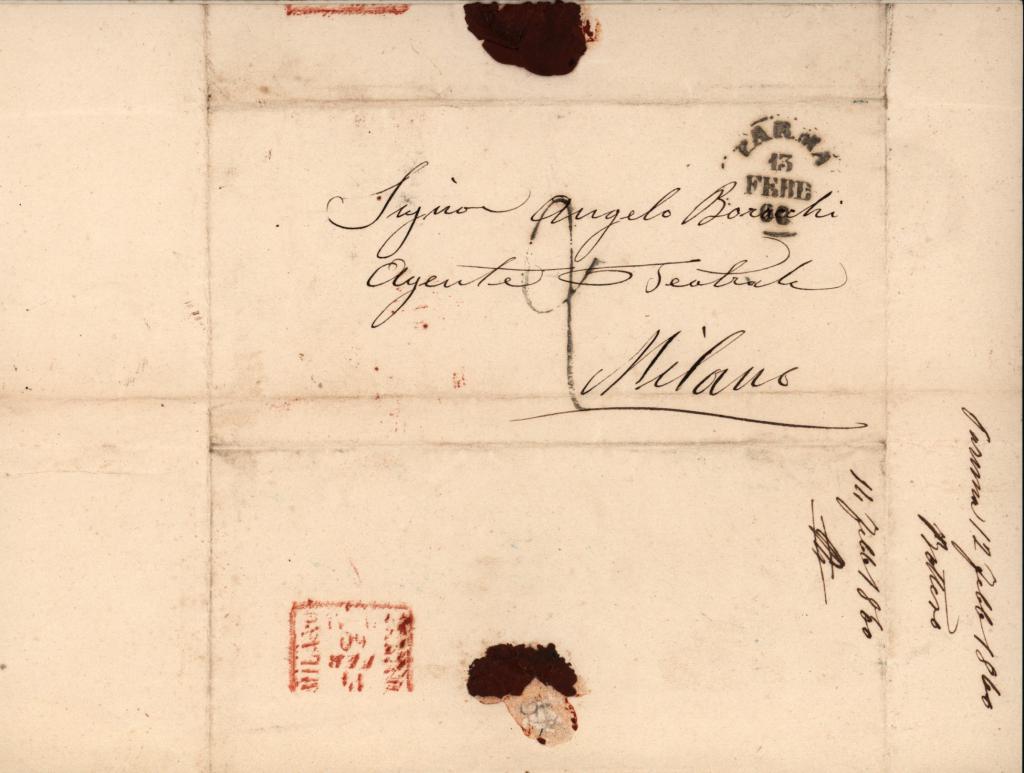 PARMA
13
FEBB
60
Signor Angelo Boracchi
Agente Teatrale
Milano
Parma 12 Febb 1860
14 Febb 1860
MILANO